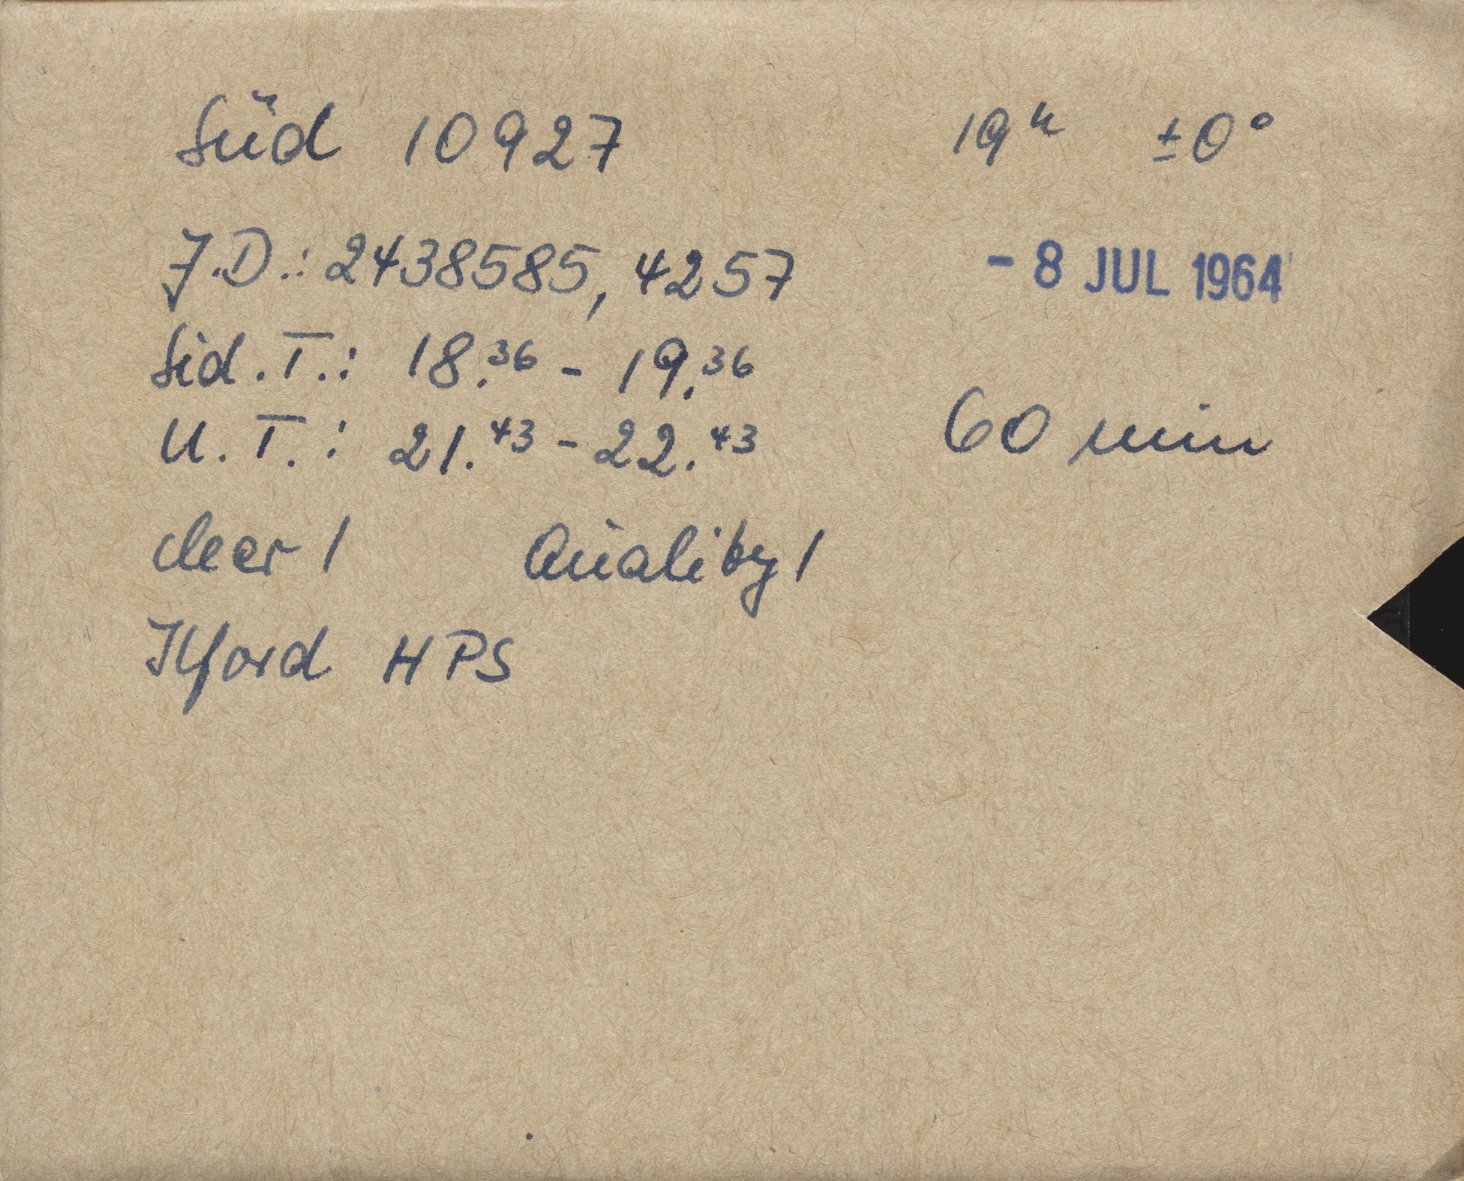 Süd 10927 19h ±0°
J.D.: 2438585,4257 - 8 JUL 1964
Sid. T.: 18.36 - 19.36
U. T.: 21.43 - 22.43 60 min
clear 1 Quality 1
Ilford HPS